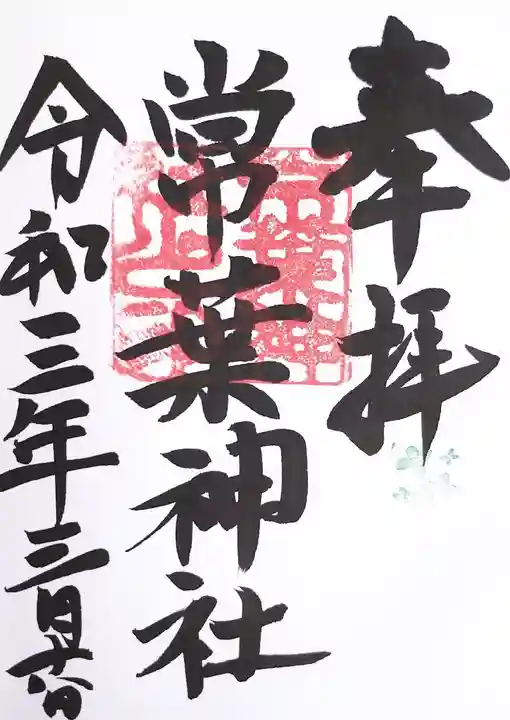 奉拝
常葉神社
令和三年三月